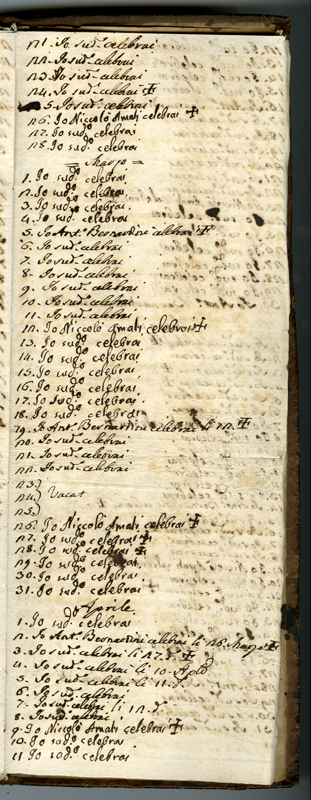 21. Io sud.º celebrai
22. Io sud.º celebrai
23. Io sud.º celebrai
24. Io sud.º celebrai ✠
25. Io sud.º celebrai
26. Io Niccolò Amati celebrai ✠
27. Io sud.º celebrai
28. Io sud.º celebrai
= Marzo =
1. Io sud.º celebrai
2. Io sud.º celebrai
3. Io sud.º celebrai
4. Io sud.º celebrai
5. Io Ant.º Bernardini celebrai ✠
6. Io sud.º celebrai
7. Io sud.º celebrai
8. Io sud.º celebrai
9. Io sud.º celebrai
10. Io sud.º celebrai
11. Io sud.º celebrai
12. Io Niccolò Amati celebrai ✠
13. Io sud.º celebrai
14. Io sud.º celebrai
15. Io sud.º celebrai
16. Io sud.º celebrai
17. Io sud.º celebrai
18. Io sud.º celebrai
19. Io Ant.º Bernardini celebrai li 22. ✠
20. Io sud.º celebrai
21. Io sud.º celebrai
22. Io sud.º celebrai
23.)
24.) Vacat
25.)
26. Io Niccolò Amati celebrai ✠
27. Io sud.º celebrai ✠
28. Io sud.º celebrai ✠
29. Io sud.º celebrai
30. Io sud.º celebrai
31. Io sud.º celebrai
Aprile
1. Io sud.º celebrai
2. Io Ant.º Bernardini celebrai li 26. Marzo ✠
3. Io sud.º celebrai li 27.
4. Io sud.º celebrai li 10.
5. Io sud.º celebrai li 11.
6. Io sud.º celebrai
7. Io sud.º celebrai li 12.
8. Io sud.º celebrai
9. Io Niccolò Amati celebrai ✠
10. Io sud.º celebrai
11. Io sud.º celebrai